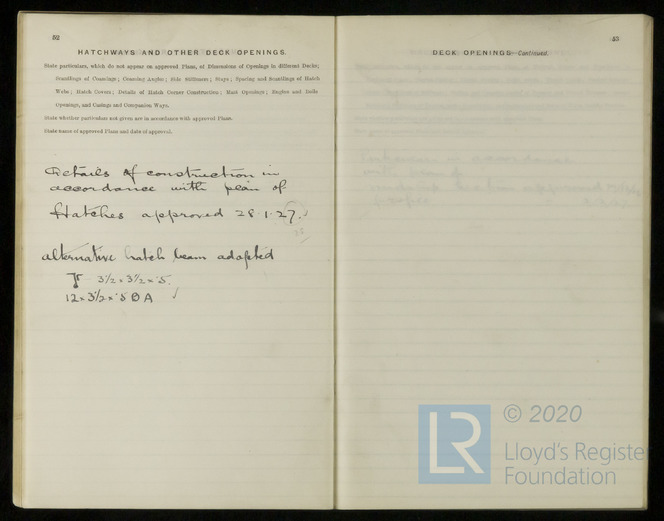 52
HATCHWAYS AND OTHER DECK OPENINGS.
State particulars, which do not appear on approved Plans, of Dimensions of Openings in different Decks;
Scantlings of Coamings; Coaming Angles; Side Stiffeners; Stays; Spacing and Scantlings of Hatch
Webs; Hatch Covers; Details of Hatch Corner Construction; Mast Openings; Engine and Boiler
Openings, and Casings and Companion Ways.
State whether particulars not given are in accordance with approved Plans.
State names of approved Plans and date of approval.
Details of construction in
accordance with plan of
Hatches approved 28.1.27.
alternative hatch beam adopted
3½ × 3½ × .5
12 × 3½ × .5 B A
53
DECK OPENINGS—Continued.
LR
© 2020
Lloyd's Register
Foundation